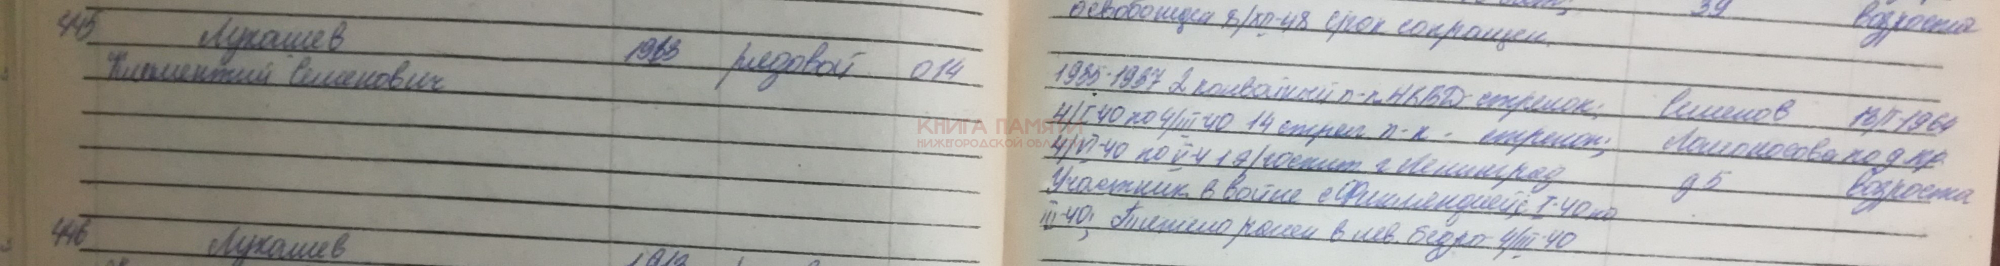 445 Лукашев 1913 рядовой 014
Климентий Семенович
освобожден 8/XII-48 срок сокращен. 39 возраста
1935-1937 2 конвойный п-к НКВД- стрелок; Семенов 18/V-1964
4/I-40 по 4/III-40 14 стрел п-к - стрелок; Ломоносова по д.
4/III-40 по V-41 э/госпит г. Ленинград д 5 возраста
Участник в войне с Финляндией с I-40 по
III-40; Тяжело ранен в лев. бедро 4/III-40
КНИГА ПАМЯТИ
НИЖЕГОРОДСКОЙ ОБЛАСТИ
446 Лукашев 1913